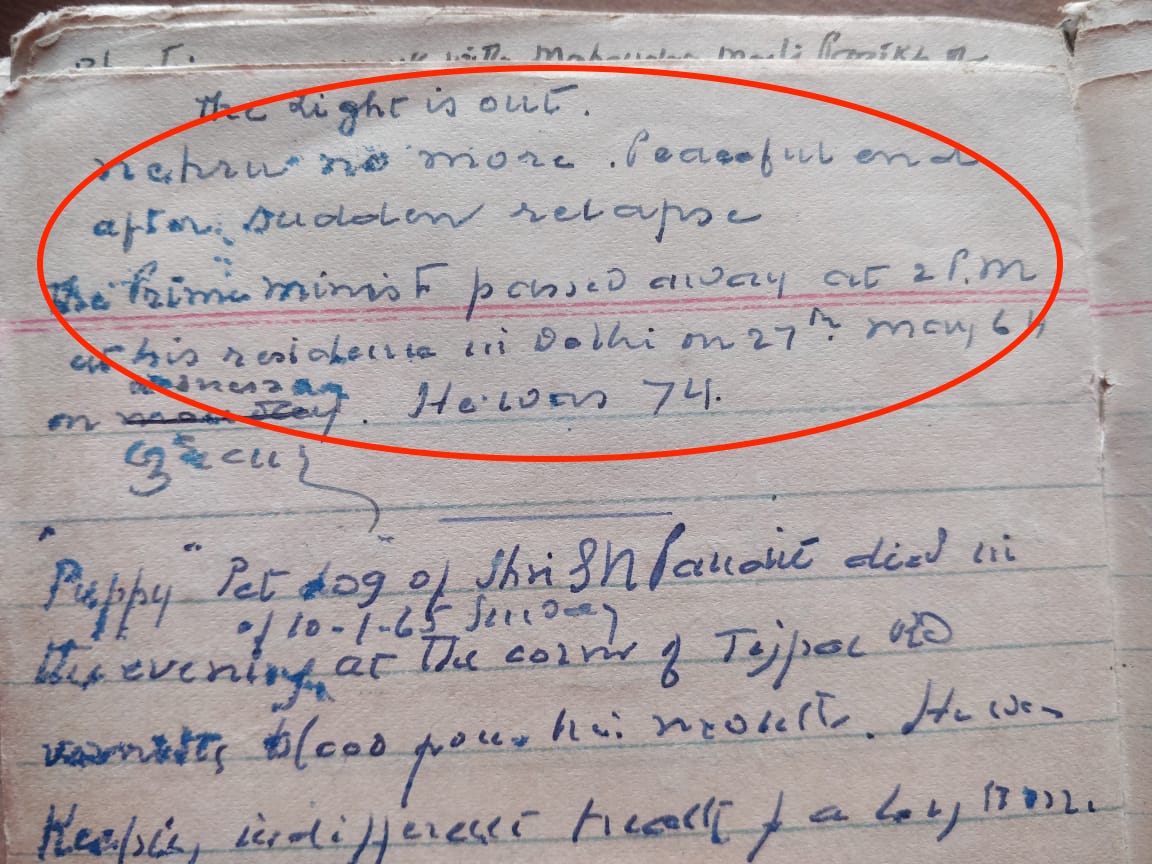 with
the Light is out.
nehru no more. Peaceful end
after sudden relapse
the Prime minist passed away at 2 P.M
at his residence in Delhi on 27th may, 64
wednesday
on . He was 74.
"Puppy" Pet dog of Shri S N Pandit died in
of 10-1-65 Sunday
the evening at the corner of Tejpal RD
blood his mouth. He was
Keeping indifferent health for a long time.